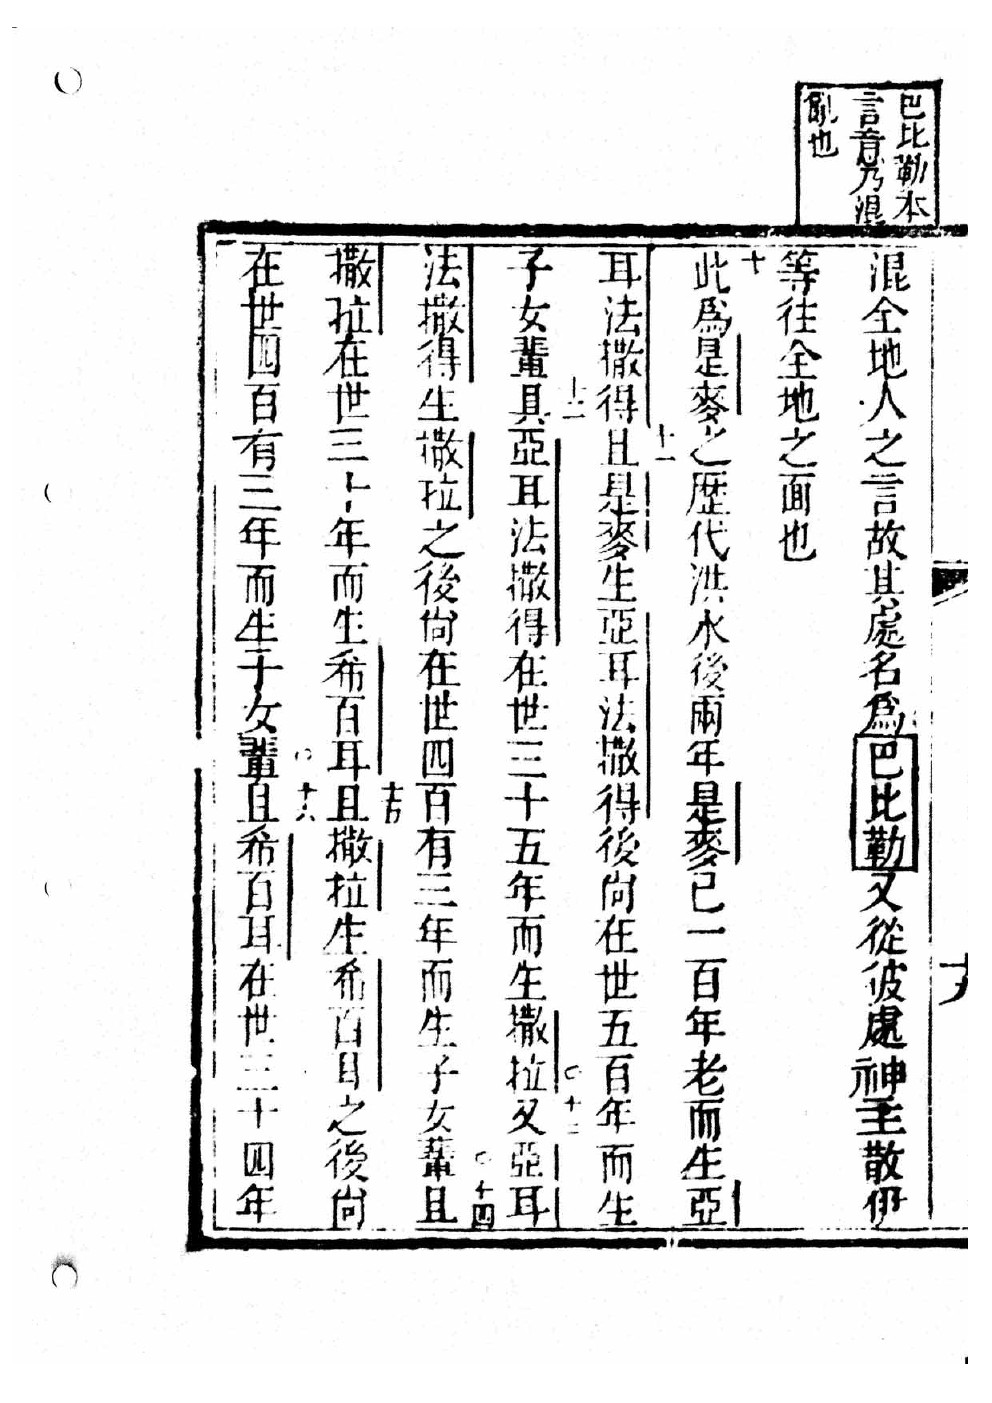 巴比勒本
言意乃混
亂也
混全地人之言故其處名爲巴比勒又從彼處神主散伊
等往全地之面也
十
此爲是麥之歷代洪水後兩年是麥已一百年老而生亞
十一
耳法撒得且是麥生亞耳法撒得後尚在世五百年而生
十二
子女輩具亞耳法撒得在世三十五年而生撒拉又亞耳
○十三
法撒得生撒拉之後尚在世四百有三年而生子女輩且
○十四
撒拉在世三十年而生希百耳且撒拉生希百耳之後尚
十五
在世四百有三年而生子女輩且希百耳在世三十四年
○十六